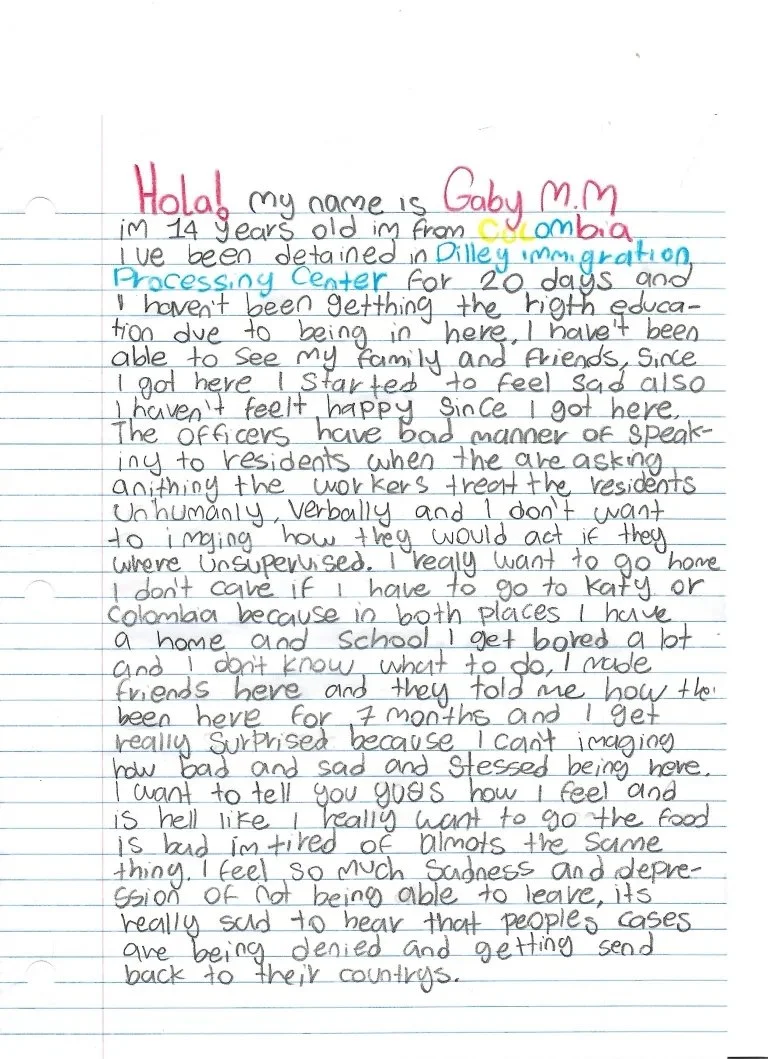 Hola! my name is Gaby M.M
im 14 years old im from COLombia
I've been detained in Dilley immigration
Processing Center for 20 days and
I haven't been getthing the rigth educa-
tion due to being in here, I have't been
able to see my family and friends, Since
I got here I started to feel sad also
I haven't feelt happy since I got here.
The officers have bad manner of speak-
ing to residents when the are asking
anithing the workers treat the residents
unhumanly, verbally and I don't want
to imging how they would act if they
where unsupervised. I realy want to go home
I don't care if I have to go to Katy or
Colombia because in both places I have
a home and school I get bored a lot
and I don't know what to do, I made
friends here and they told me how the
been here for 7 months and I get
really surprised because I can't imaging
how bad and sad and stessed being here.
I want to tell you how I feel and
is hell like I really want to go the food
is bad im tired of almots the same
thing. I feel so much sadness and depre-
ssion of not being able to leave, its
really sad to hear that peoples cases
are being denied and getting send
back to their countrys.